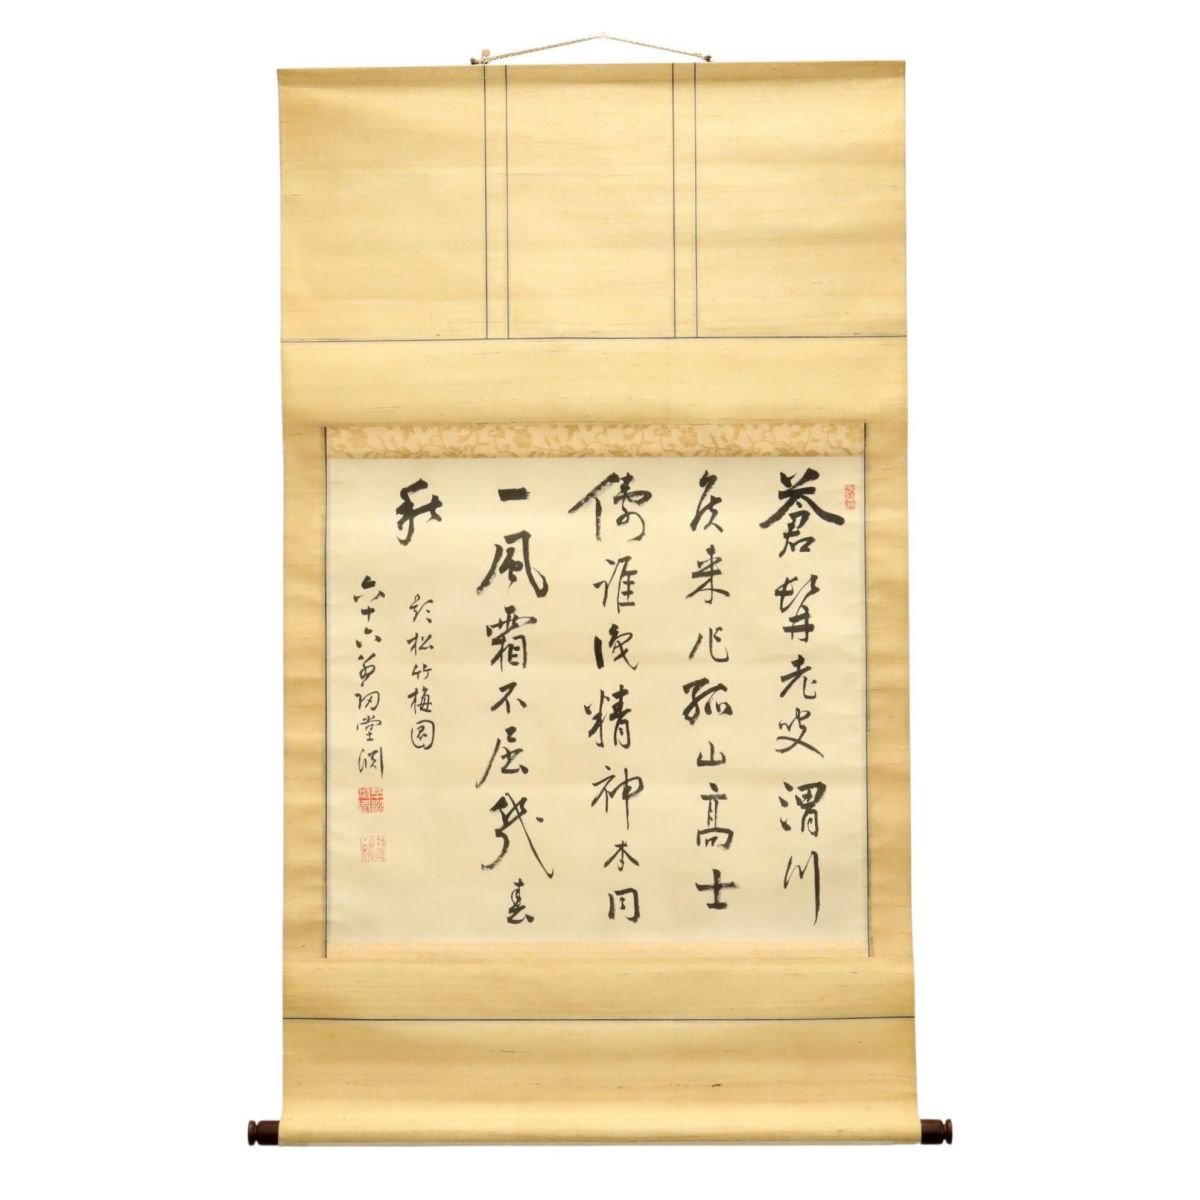 蒼髯老叟渭川
侯来作孤山高士
儔誰識精神本同
一風霜不屈幾春
秋
題松竹梅図
六十六翁 堂